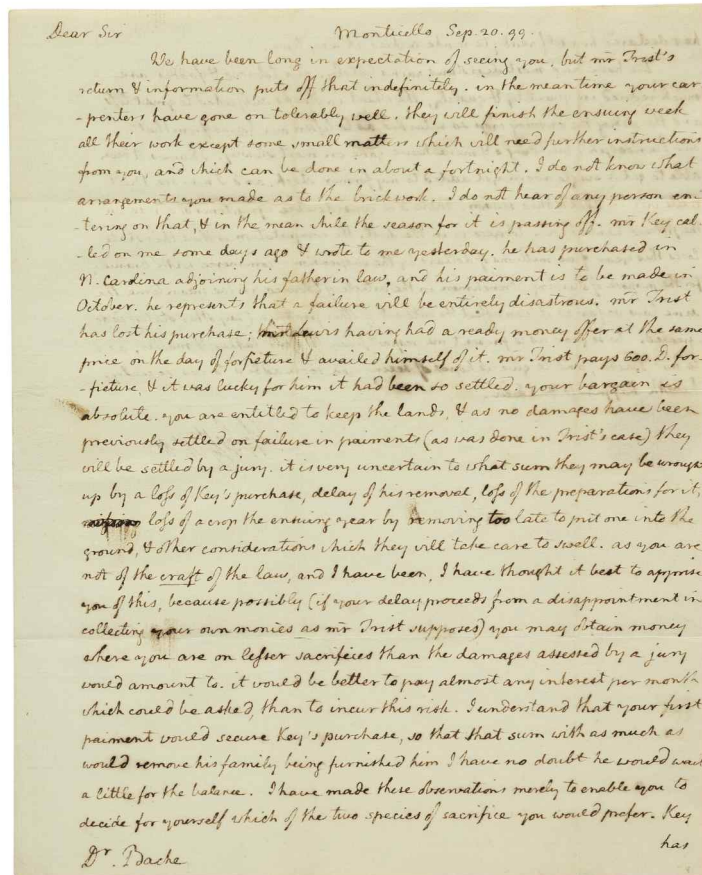 Dear Sir Monticello Sep. 20. 99.
We have been long in expectation of seeing you, but mr Trist's
return & information puts off that indefinitely. in the mean time your car
-penters have gone on tolerably well. they will finish the ensuing week
all their work except some small matters which will need further instructions
from you, and which can be done in about a fortnight. I do not know what
arrangements you made as to the brickwork. I do not hear of any person en-
-tering on that, & in the mean while the season for it is passing off. mr Key cal-
-led on me some days ago & wrote to me yesterday. he has purchased in
N. Carolina adjoining his father in law, and his paiment is to be made in
October. he represents that a failure will be entirely disastrous. mr Trist
has lost his purchase; mr Lewis having had a ready money offer at the same
price on the day of forfieture & availed himself of it. mr Trist pays 600. D. for-
-fieture, & it was lucky for him it had been so settled. your bargain is
absolute. you are entitled to keep the lands, & as no damages have been
previously settled on failure in paiments (as was done in Trist's case) they
will be settled by a jury. it is very uncertain to what sum they may be wrought
up by a loss of Key's purchase, delay of his removal, loss of the preparations for it,
loss of a crop the ensuing year by removing too late to put one into the
ground, & other considerations which they will take care to swell. as you are
not of the craft of the law, and I have been, I have thought it best to apprise
you of this, because possibly (if your delay proceeds from a disappointment in
collecting your own monies as mr Trist supposes) you may obtain money
where you are on lesser sacrifices than the damages assessed by a jury
would amount to. it would be better to pay almost any interest per month
which could be asked, than to incur this risk. I understand that your first
paiment would secure Key's purchase, so that that sum with as much as
would remove his family being furnished him I have no doubt he would wait
a little for the balance. I have made these observations merely to enable you to
decide for yourself which of the two species of sacrifice you would prefer. Key
has
Dr. Bache